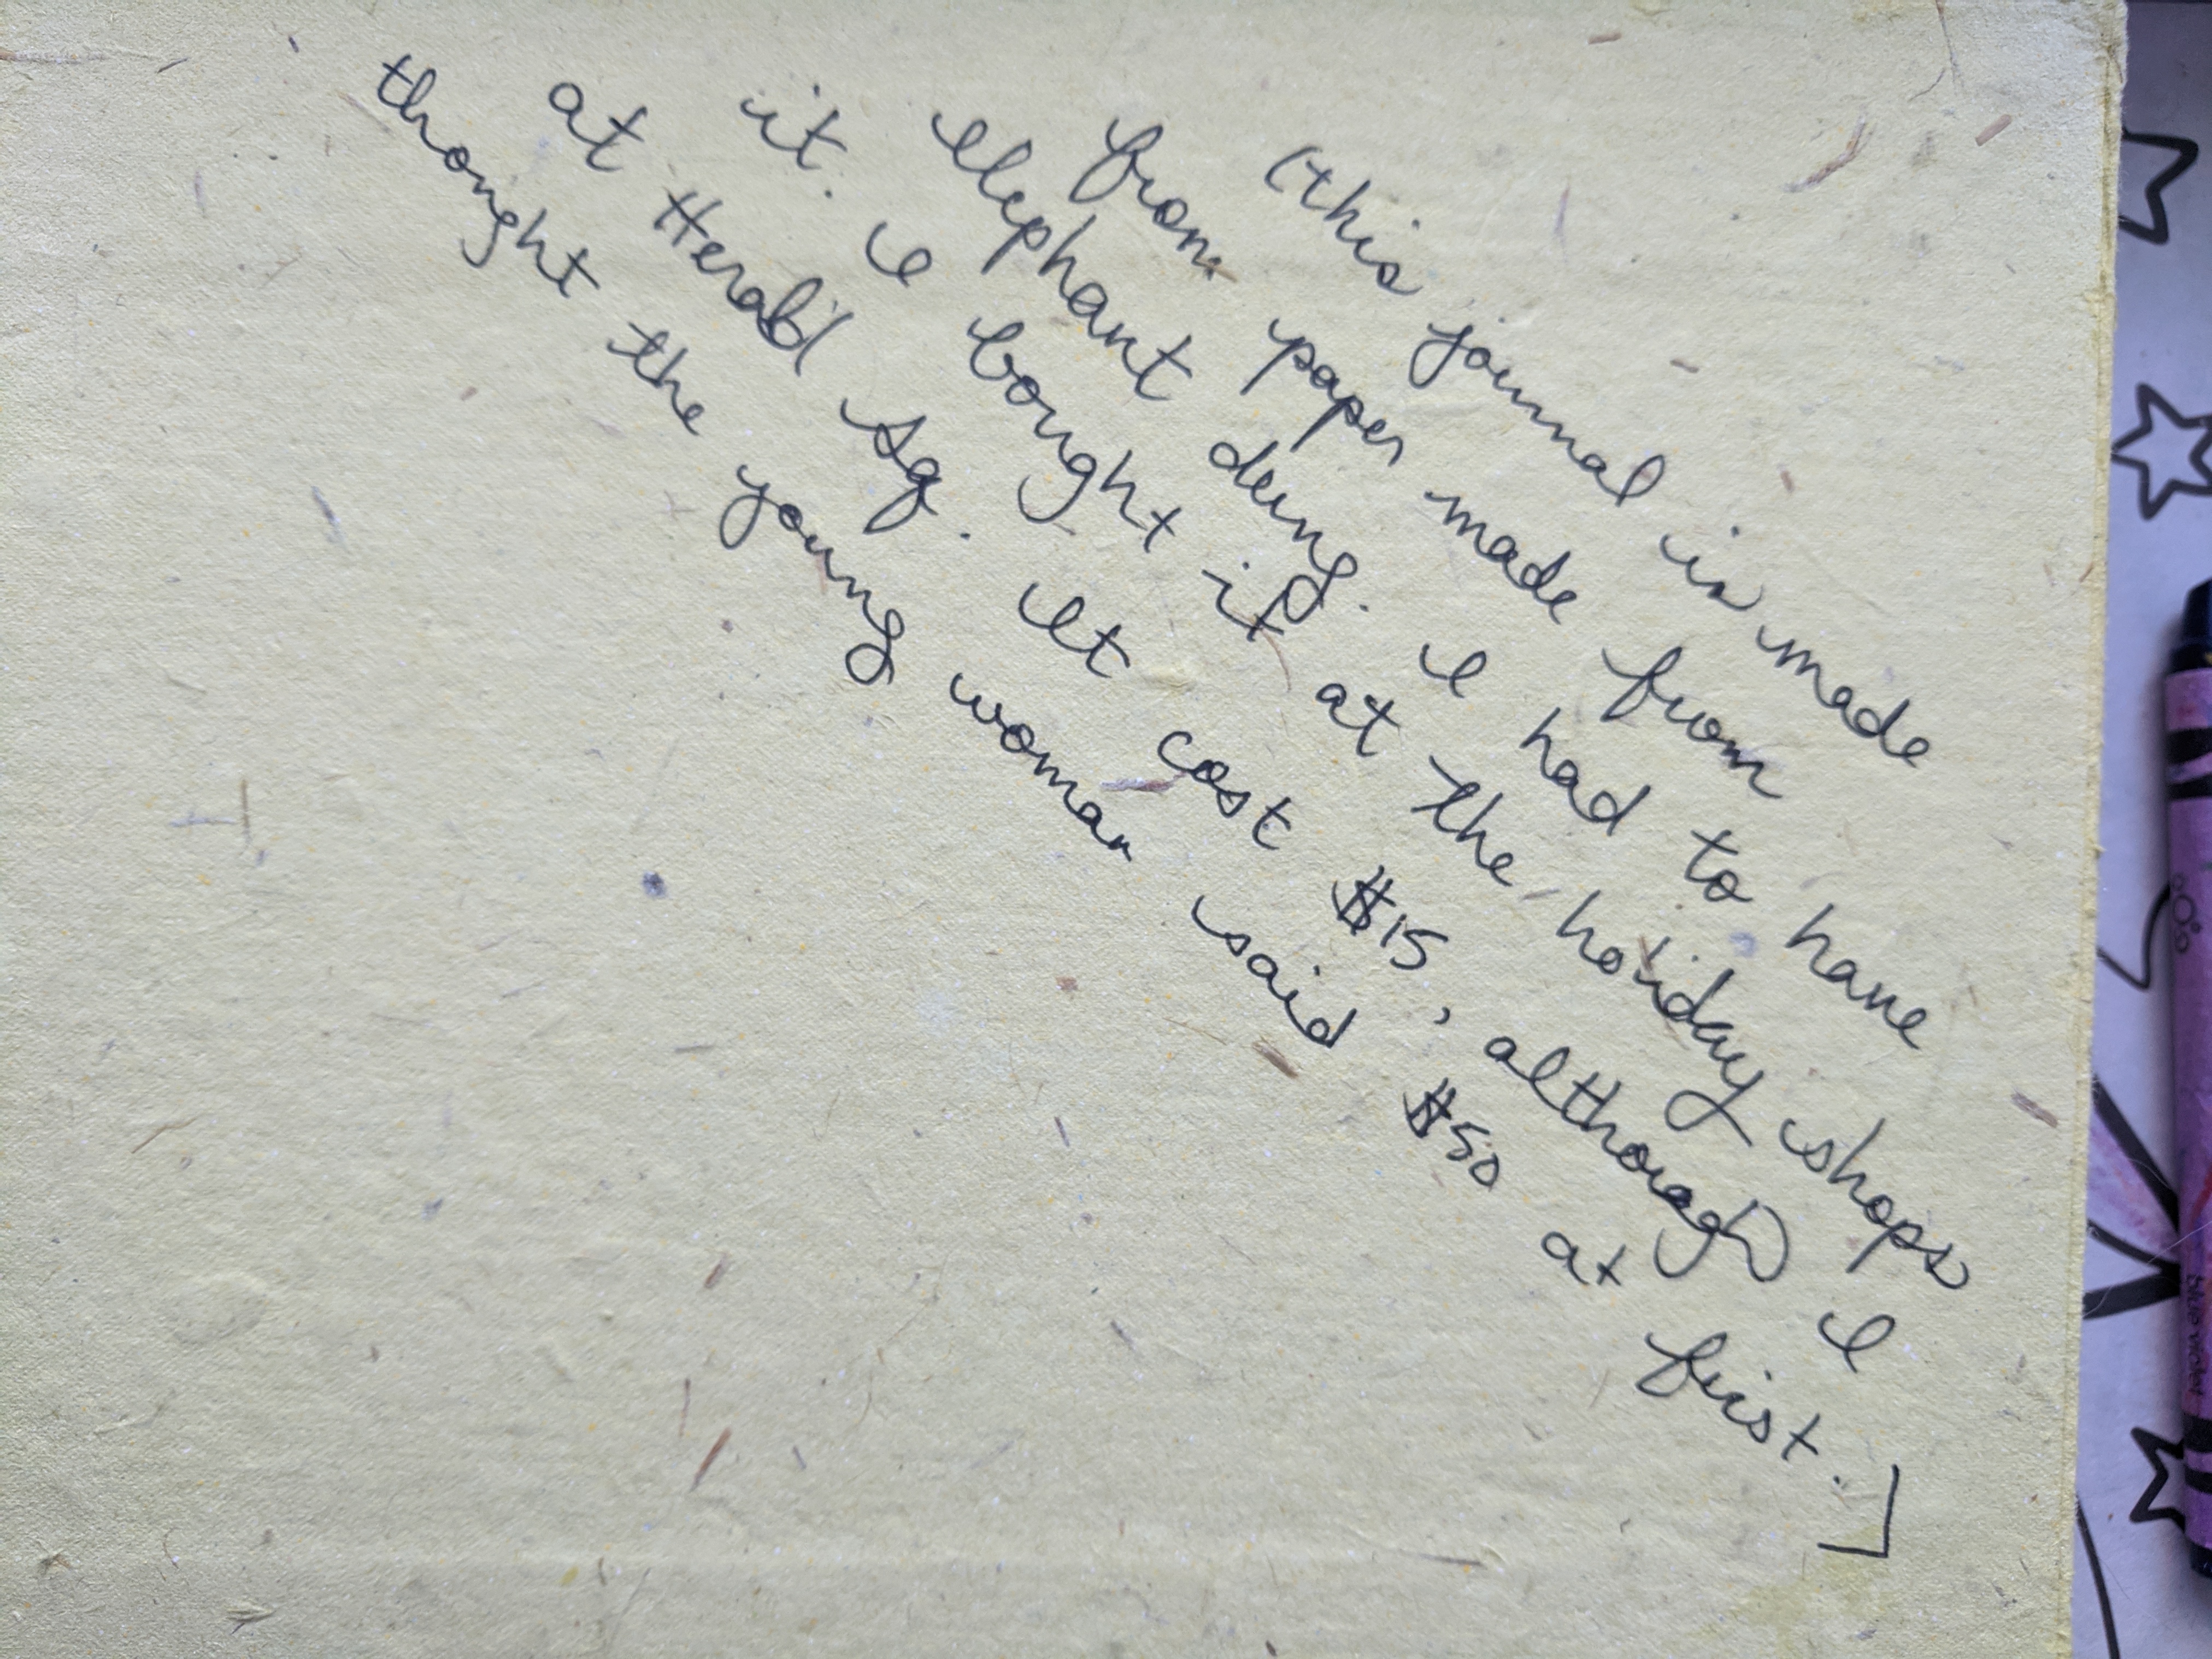 (this journal is made
from paper made from
elephant dung. I had to have
it. I bought it at the holiday shops
at Herald Sq. It cost $15, although I
thought the young woman said $50 at first.]